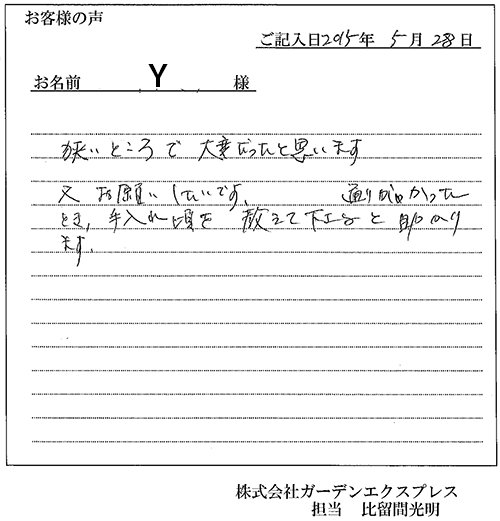 お客様の声
ご記入日2015年 5月28日
お名前 Y 様
狭いところで大変だったと思います
又お願いしたいです、 通りがかった
とき、手入れ頃を教えて下さると助かり
ます.
株式会社ガーデンエクスプレス
担当 比留間光明